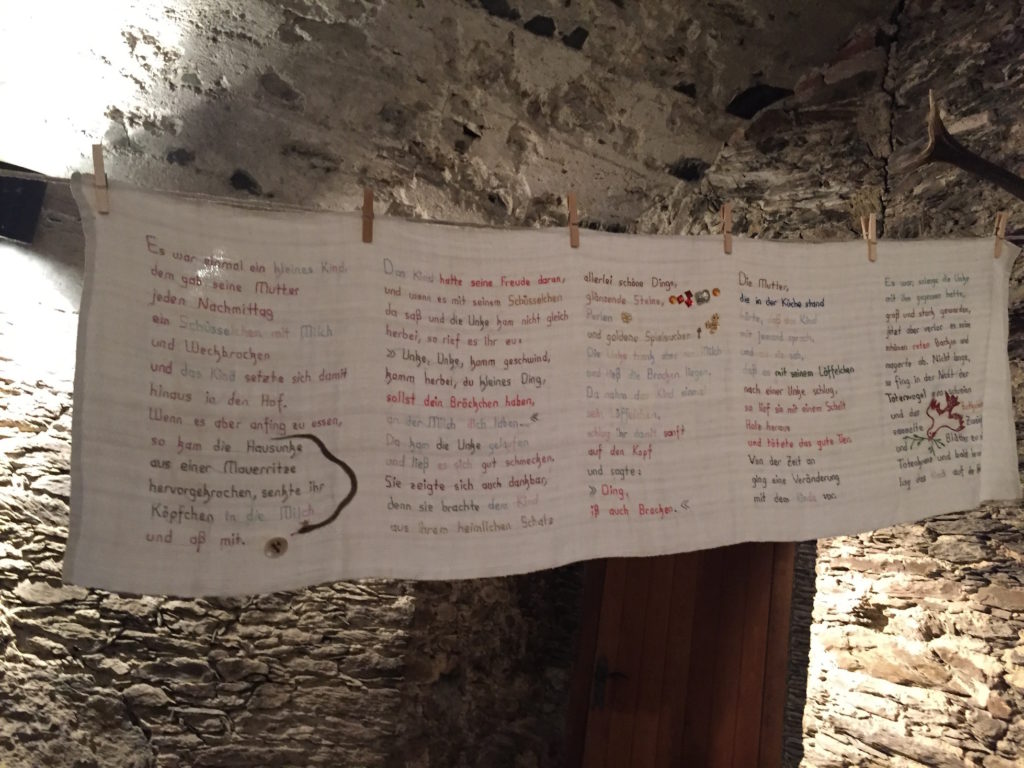 Es war einmal ein kleines Kind,
dem gab seine Mutter
jeden Nachmittag
ein Schüsselchen mit Milch
und Weckbrocken
und das Kind setzte sich damit
hinaus in den Hof.
Wenn es aber anfing zu essen,
so kam die Hausunke
aus einer Mauerritze
hervorgekrochen, senkte ihr
Köpfchen in die Milch
und aß mit.
Das Kind hatte seine Freude daran,
und wenn es mit seinem Schüsselchen
da saß und die Unke kam nicht gleich
herbei, so rief es ihr zu:
» Unke, Unke, komm geschwind,
komm herbei, du kleines Ding,
sollst dein Bröckchen haben,
an der Milch dich laben. «
Da kam die Unke gelaufen
und ließ es sich gut schmecken.
Sie zeigte sich auch dankbar,
denn sie brachte dem Kind
aus ihrem heimlichen Schatz
allerlei schöne Dinge,
glänzende Steine,
Perlen
und goldene Spielsachen
Die Unke trank aber nur Milch
und ließ die Brocken liegen.
Da nahm das Kind einmal
sein Löffelchen,
schlug ihr damit sanft
auf den Kopf
und sagte:
» Ding,
iß auch Brocken. «
Die Mutter,
die in der Küche stand
hörte, daß das Kind
mit jemand sprach,
und als sie sah,
daß es mit seinem Löffelchen
nach einer Unke schlug,
so lief sie mit einem Scheit
Holz heraus
und tötete das gute Tier.
Von der Zeit an
ging eine Veränderung
mit dem Kinde vor.
Es war, solange die Unke
mit ihm gegessen hatte,
groß und stark geworden,
jetzt aber verlor es seine
schönen roten Backen und
magerte ab. Nicht lange,
so fing in der Nacht der
Totenvogel
und das
sammelte
und Blätter
Totenkranz und bald
lag das auf der